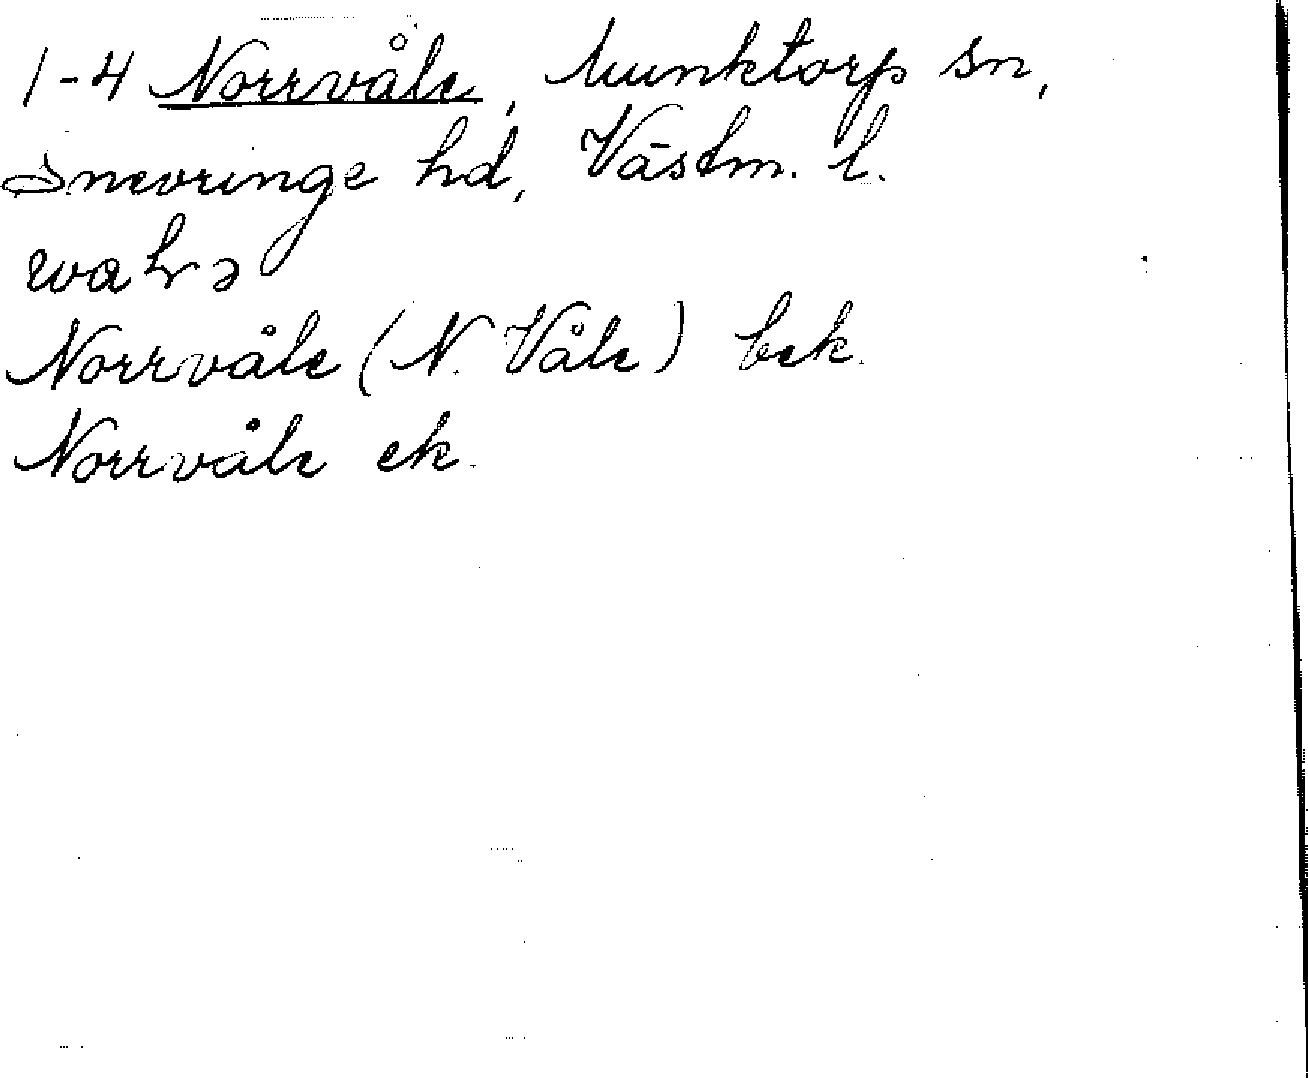 1-4 Norrvåle, Munktorp sn,
Snevringe hd, Västm. l.
Norrvåle (N. Våle) bek.
Norrvåle ek.